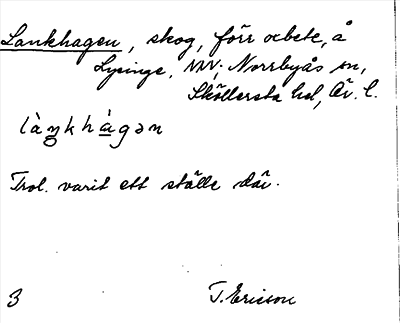 Lankhagen, skog, förr arbete, å
Lysinge, NV, Norrbyås sn,
Sköllersta hd, Är. l.
làŋkhàgən
Trol. varit ett ställe där.
3 T. Ericson